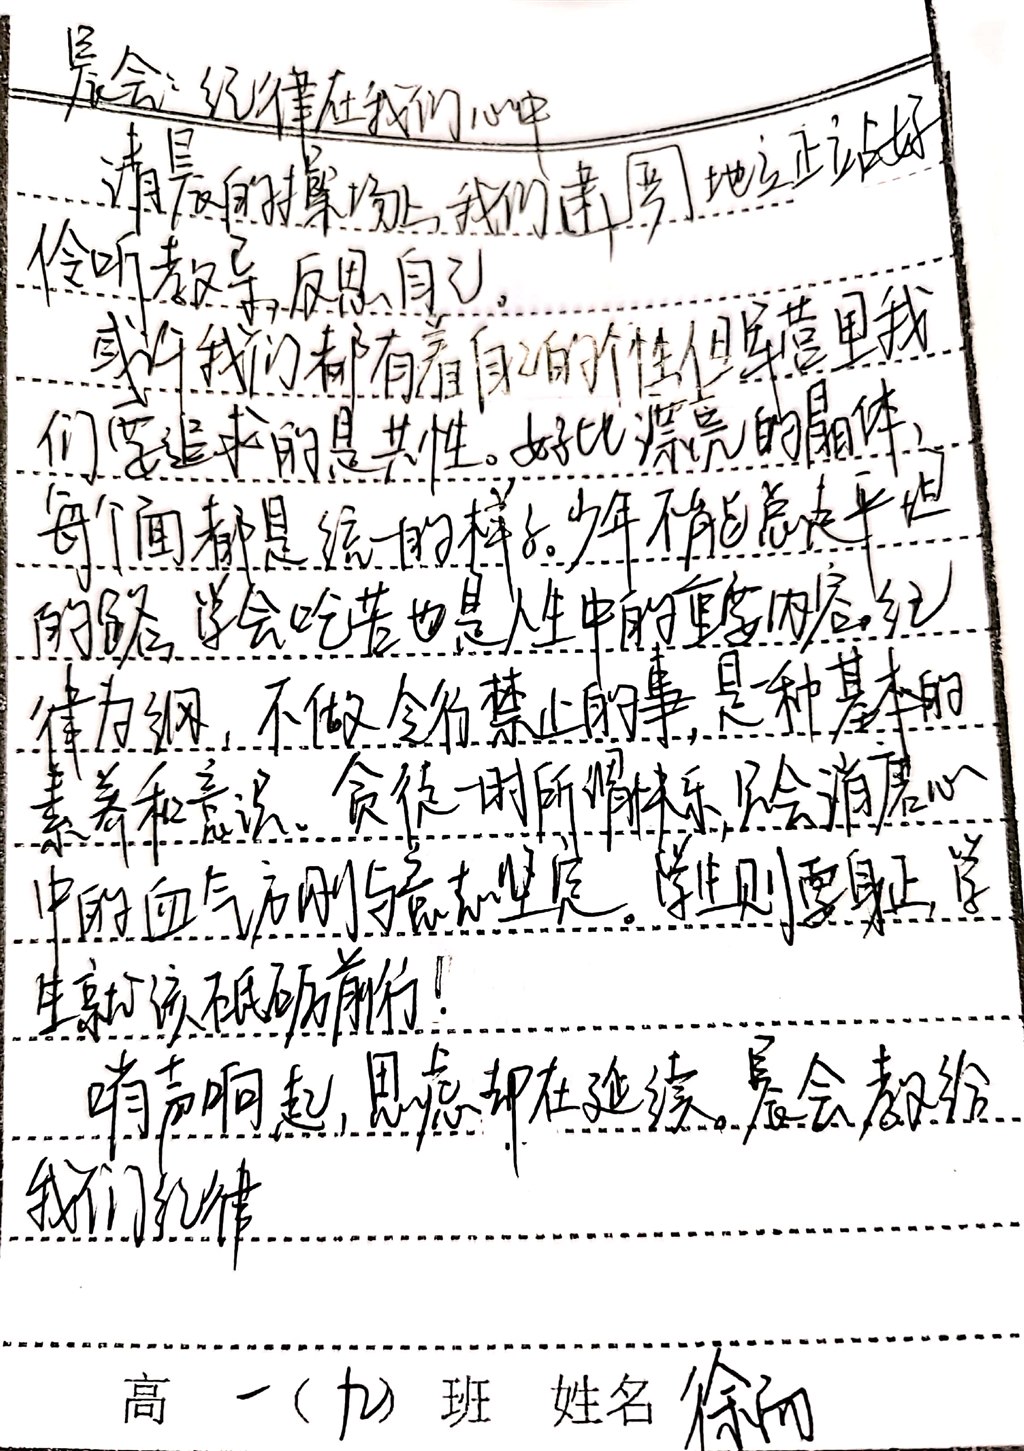 晨会：纪律在我们心中
清晨的操场上，我们 地立正站好
伶听教导，反思自己。
或许我们都有着自己的个性但军营里我
们要追求的是共性。好比漂亮的晶体，
每个面都是统一的样子。少年不能总走平坦
的路，学会吃苦也是人生中的重要内容。纪
律为纲，不做令行禁止的事，是一种基本的
素养和意识。贪徒一时所谓快乐，只会消磨心
中的血气方刚与意志坚定。学生则要身正，学
生就该砥砺前行！
哨声响起，思虑却在延续。晨会教给
我们纪律
高一（九）班 姓名 徐